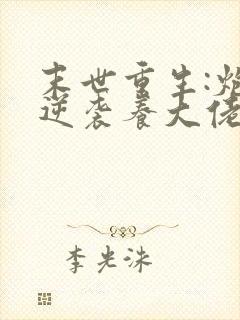 末世重生:炮
逆袭养大佬
李光洙